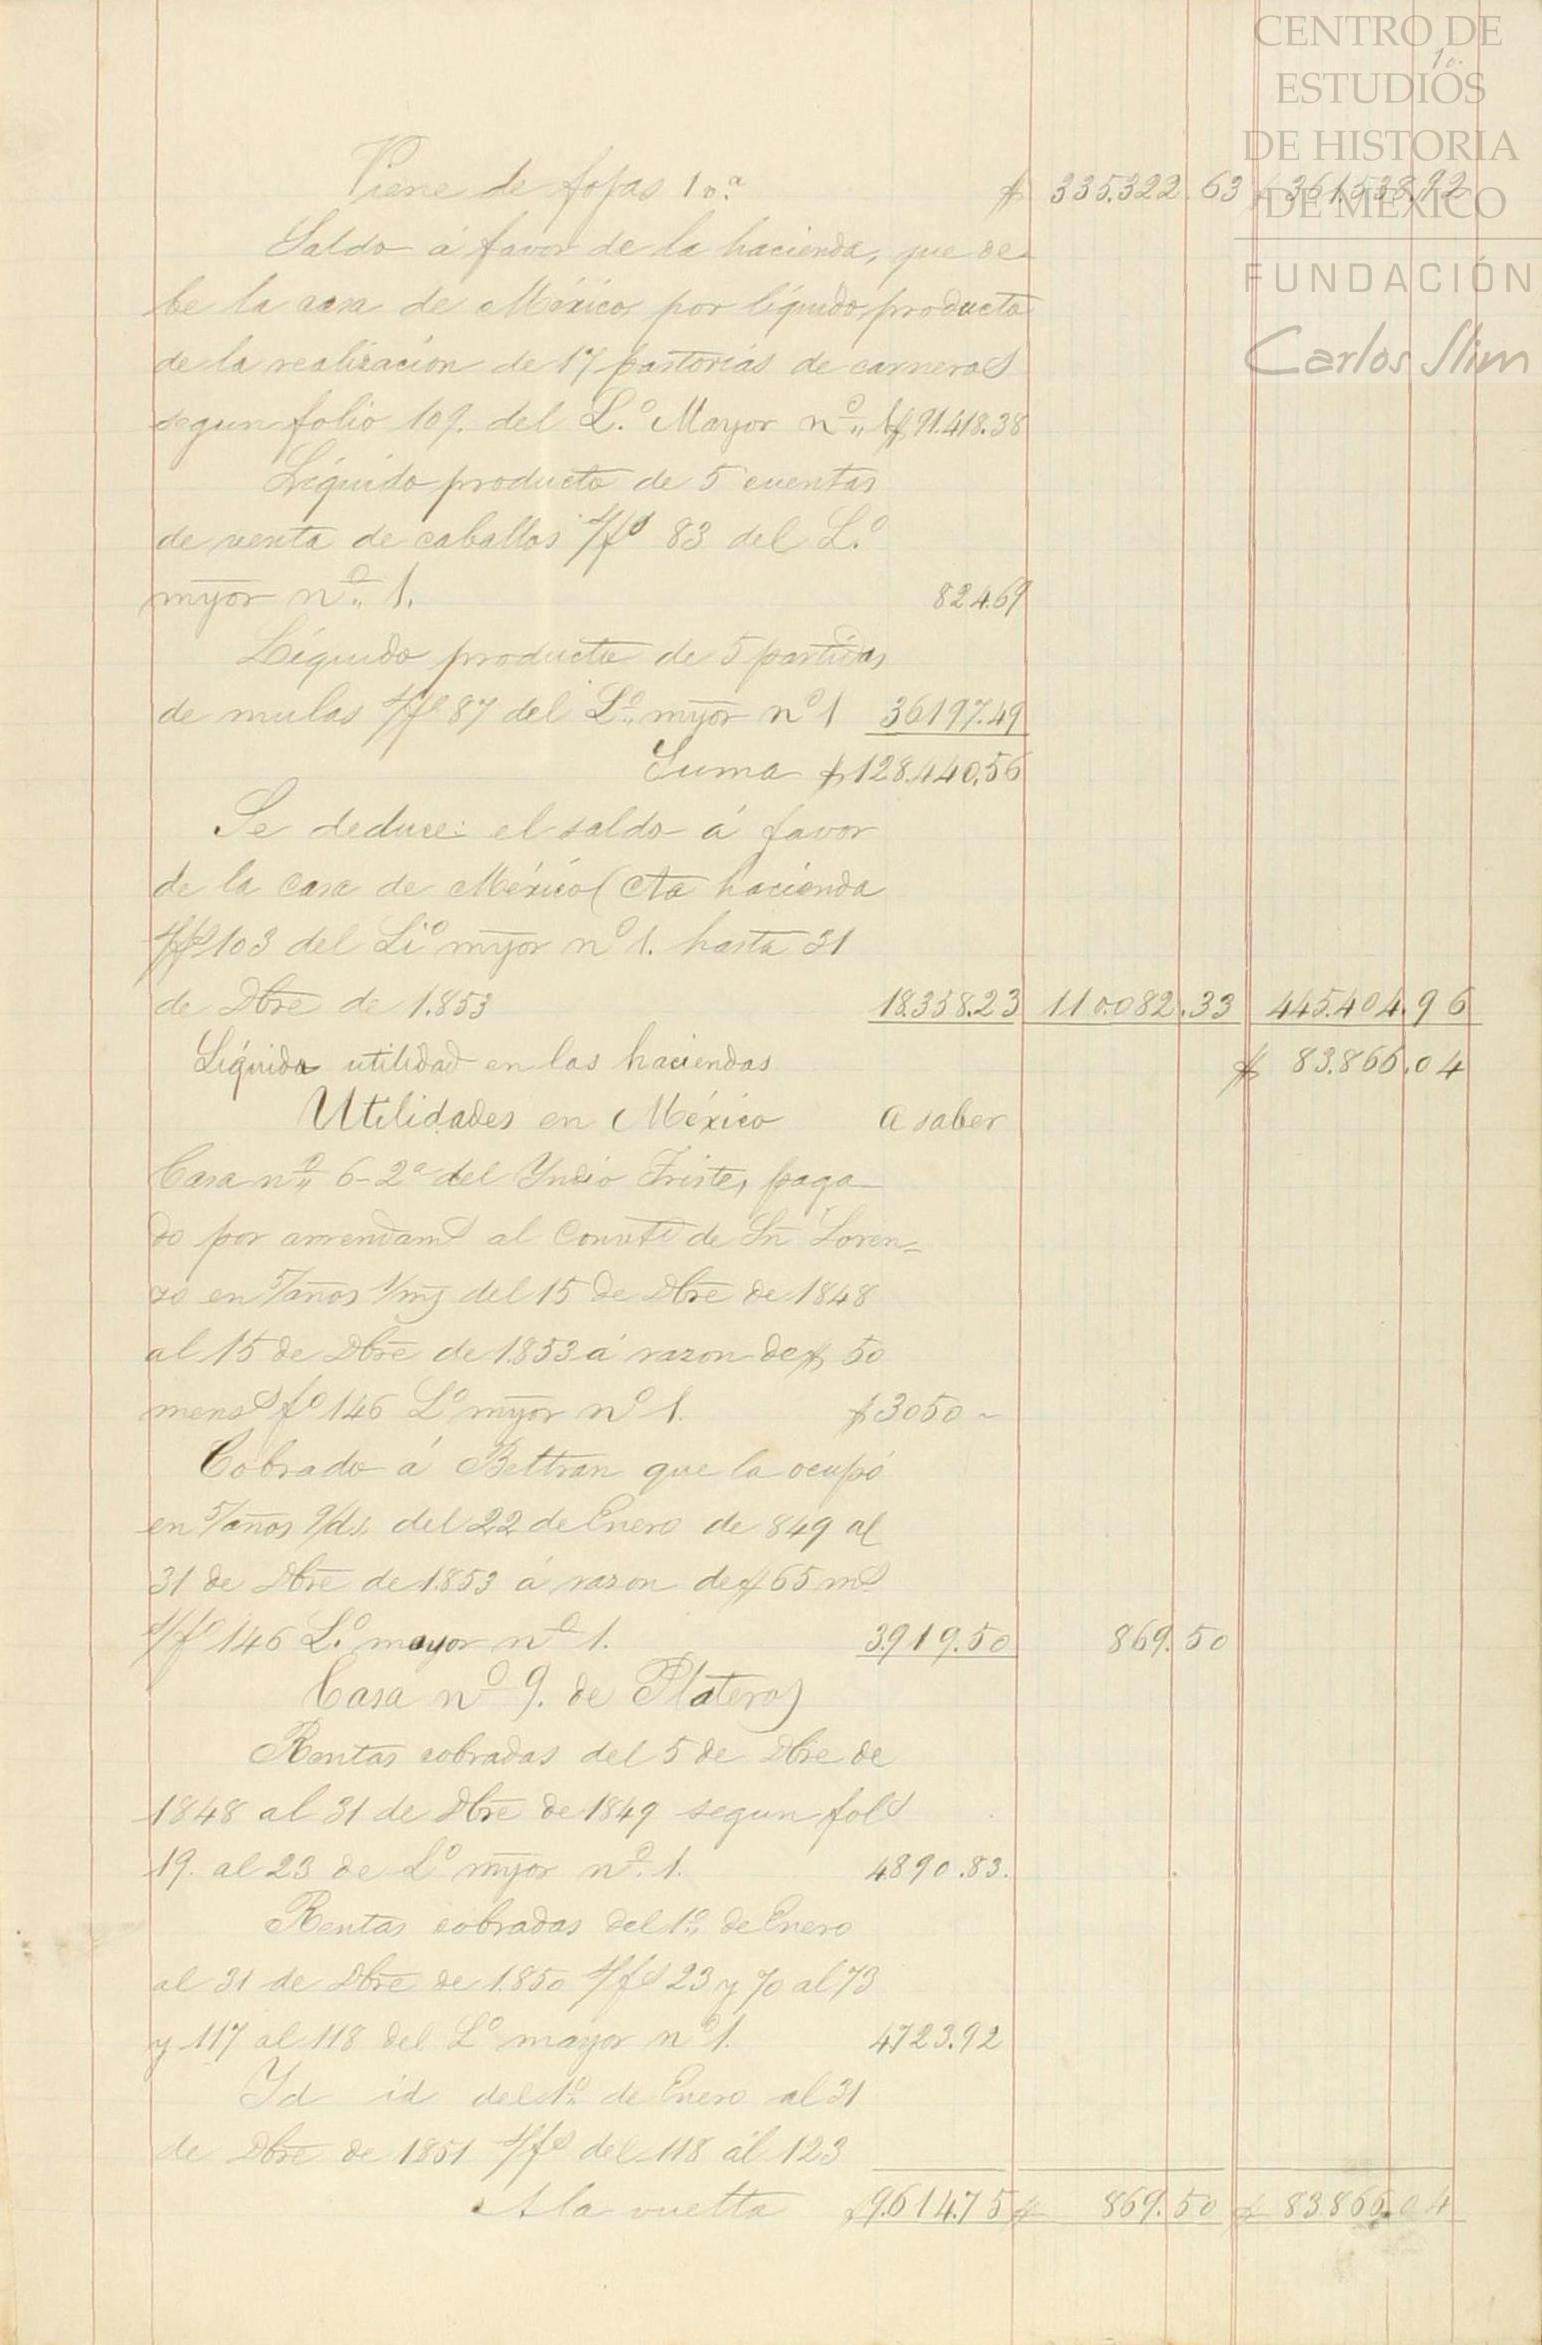 CENTRO DE
ESTUDIOS
DE HISTORIA
DE MÉXICO
FUNDACIÓN
Carlos Slim
10.
Viene de fojas 10.a $ 335.322.63 $ 361.538.92
Saldo á favor de la hacienda, que de
be la casa de México, por líquido producto
de la realizacion de 17 pastorías de carneros
segun folio 109. del L.o Mayor no. 1 $ 91.418.38
Líquido producto de 5 cuentas
de venta de caballos s/fs 83 del L.o
myor no. 1. 824.69
Líquido producto de 5 partidas
de mulas s/fs 87 del Lo. myor no 1 36197.49
Suma $ 128.440.56
Se deduce: el saldo á favor
de la casa de México (Cta hacienda
s/fs 103 del Lio myor no 1. hasta 31
de Dbre de 1.853 18.358.23 110.082.33 445.404.96
Líquida utilidad en las haciendas $ 83.866.04
Utilidades en México a saber
Casa no. 6-2a del Yndio Triste, paga-
do por arrendams al Convto de Sn Loren=
zo en 5/años 1/mes del 15 de Dbre de 1848
al 15 de Dbre de 1.853 á razon de $ 50
mens fo 146 Lo myor no 1. $ 3050 ~
Cobrado á Beltran que la ocupó
en 5/años 9/ds. del 22 de Enero de 849 al
31 de Dbre de 1.853 á razon de $ 65 ms
s/fo 146 L.o mayor no 1. 3.919.50 869.50
Casa no 9. de Plateros
Rentas cobradas del 5 de Dbre de
1848 al 31 de Dbre de 1849 segun fols
19. al 23 de Lo myor no. 1. 4.890.83.
Rentas cobradas del 1o. de Enero
al 31 de Dbre de 1.850 s/fs 23 y 70 al 73
y 117 al 118 del Lo mayor no 1. 4723.92
Yd id del 1o. de Enero al 31
de Dbre de 1851 s/fs del 118 ál 123
A la vuelta $ 9.614.75 $ 869.50 $ 83.866.04